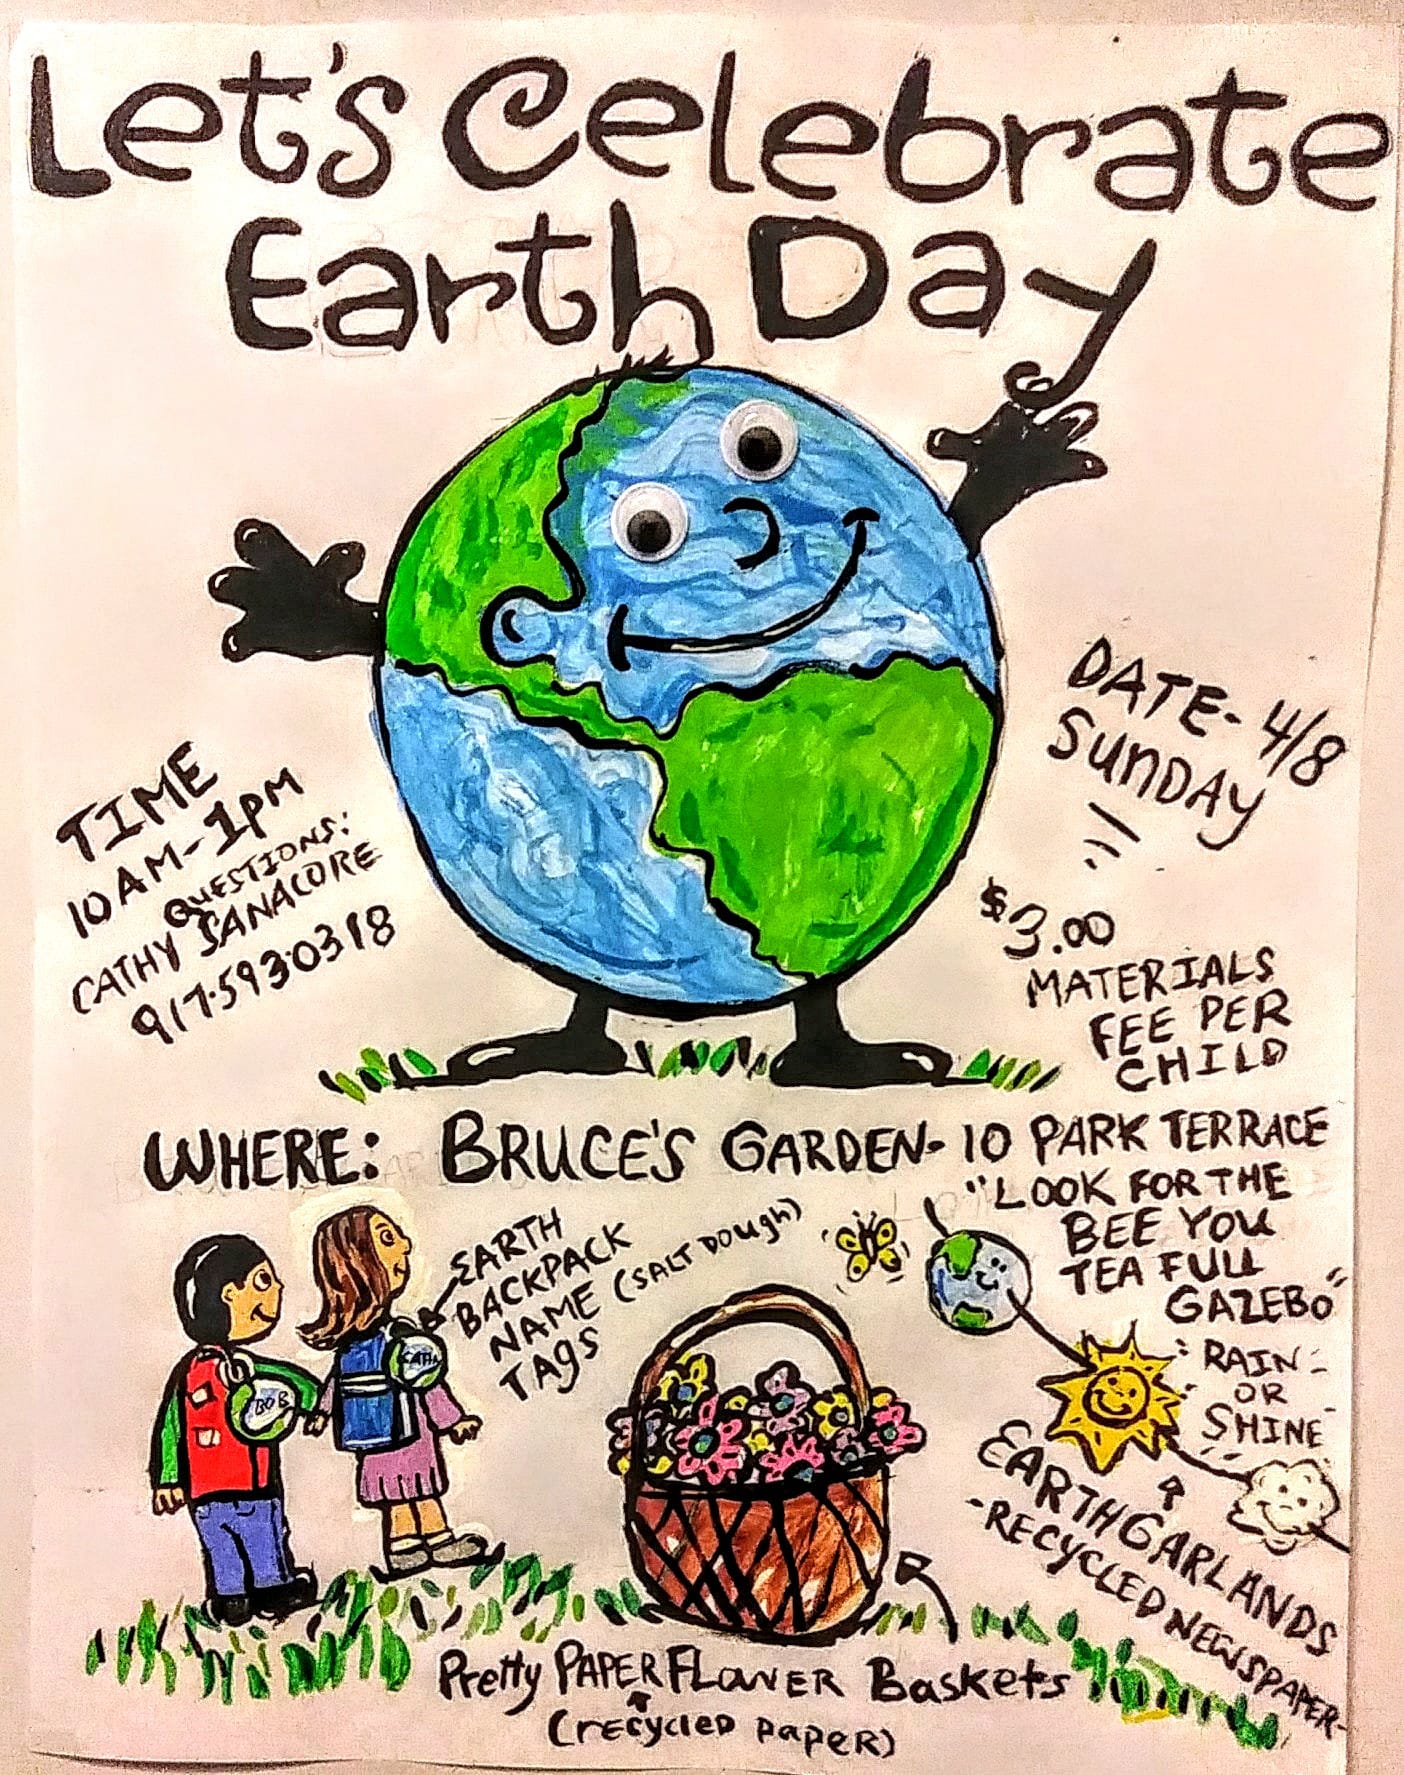 Let's Celebrate
Earth Day
DATE- 4/8
SUNDAY
TIME
10AM-1PM
QUESTIONS:
CATHY SANACORE
917.593.0318
$3.00
MATERIALS
FEE PER
CHILD
WHERE: BRUCE'S GARDEN- 10 PARK TERRACE
"LOOK FOR THE
BEE YOU
TEA FULL
GAZEBO"
RAIN
OR
SHINE
EARTH
BACKPACK
NAME (SALT DOUGH)
TAGS
BOB
CATHY
EARTH GARLANDS
-RECYCLED NEWSPAPER-
Pretty PAPER FLOWER Baskets
(recycled paper)